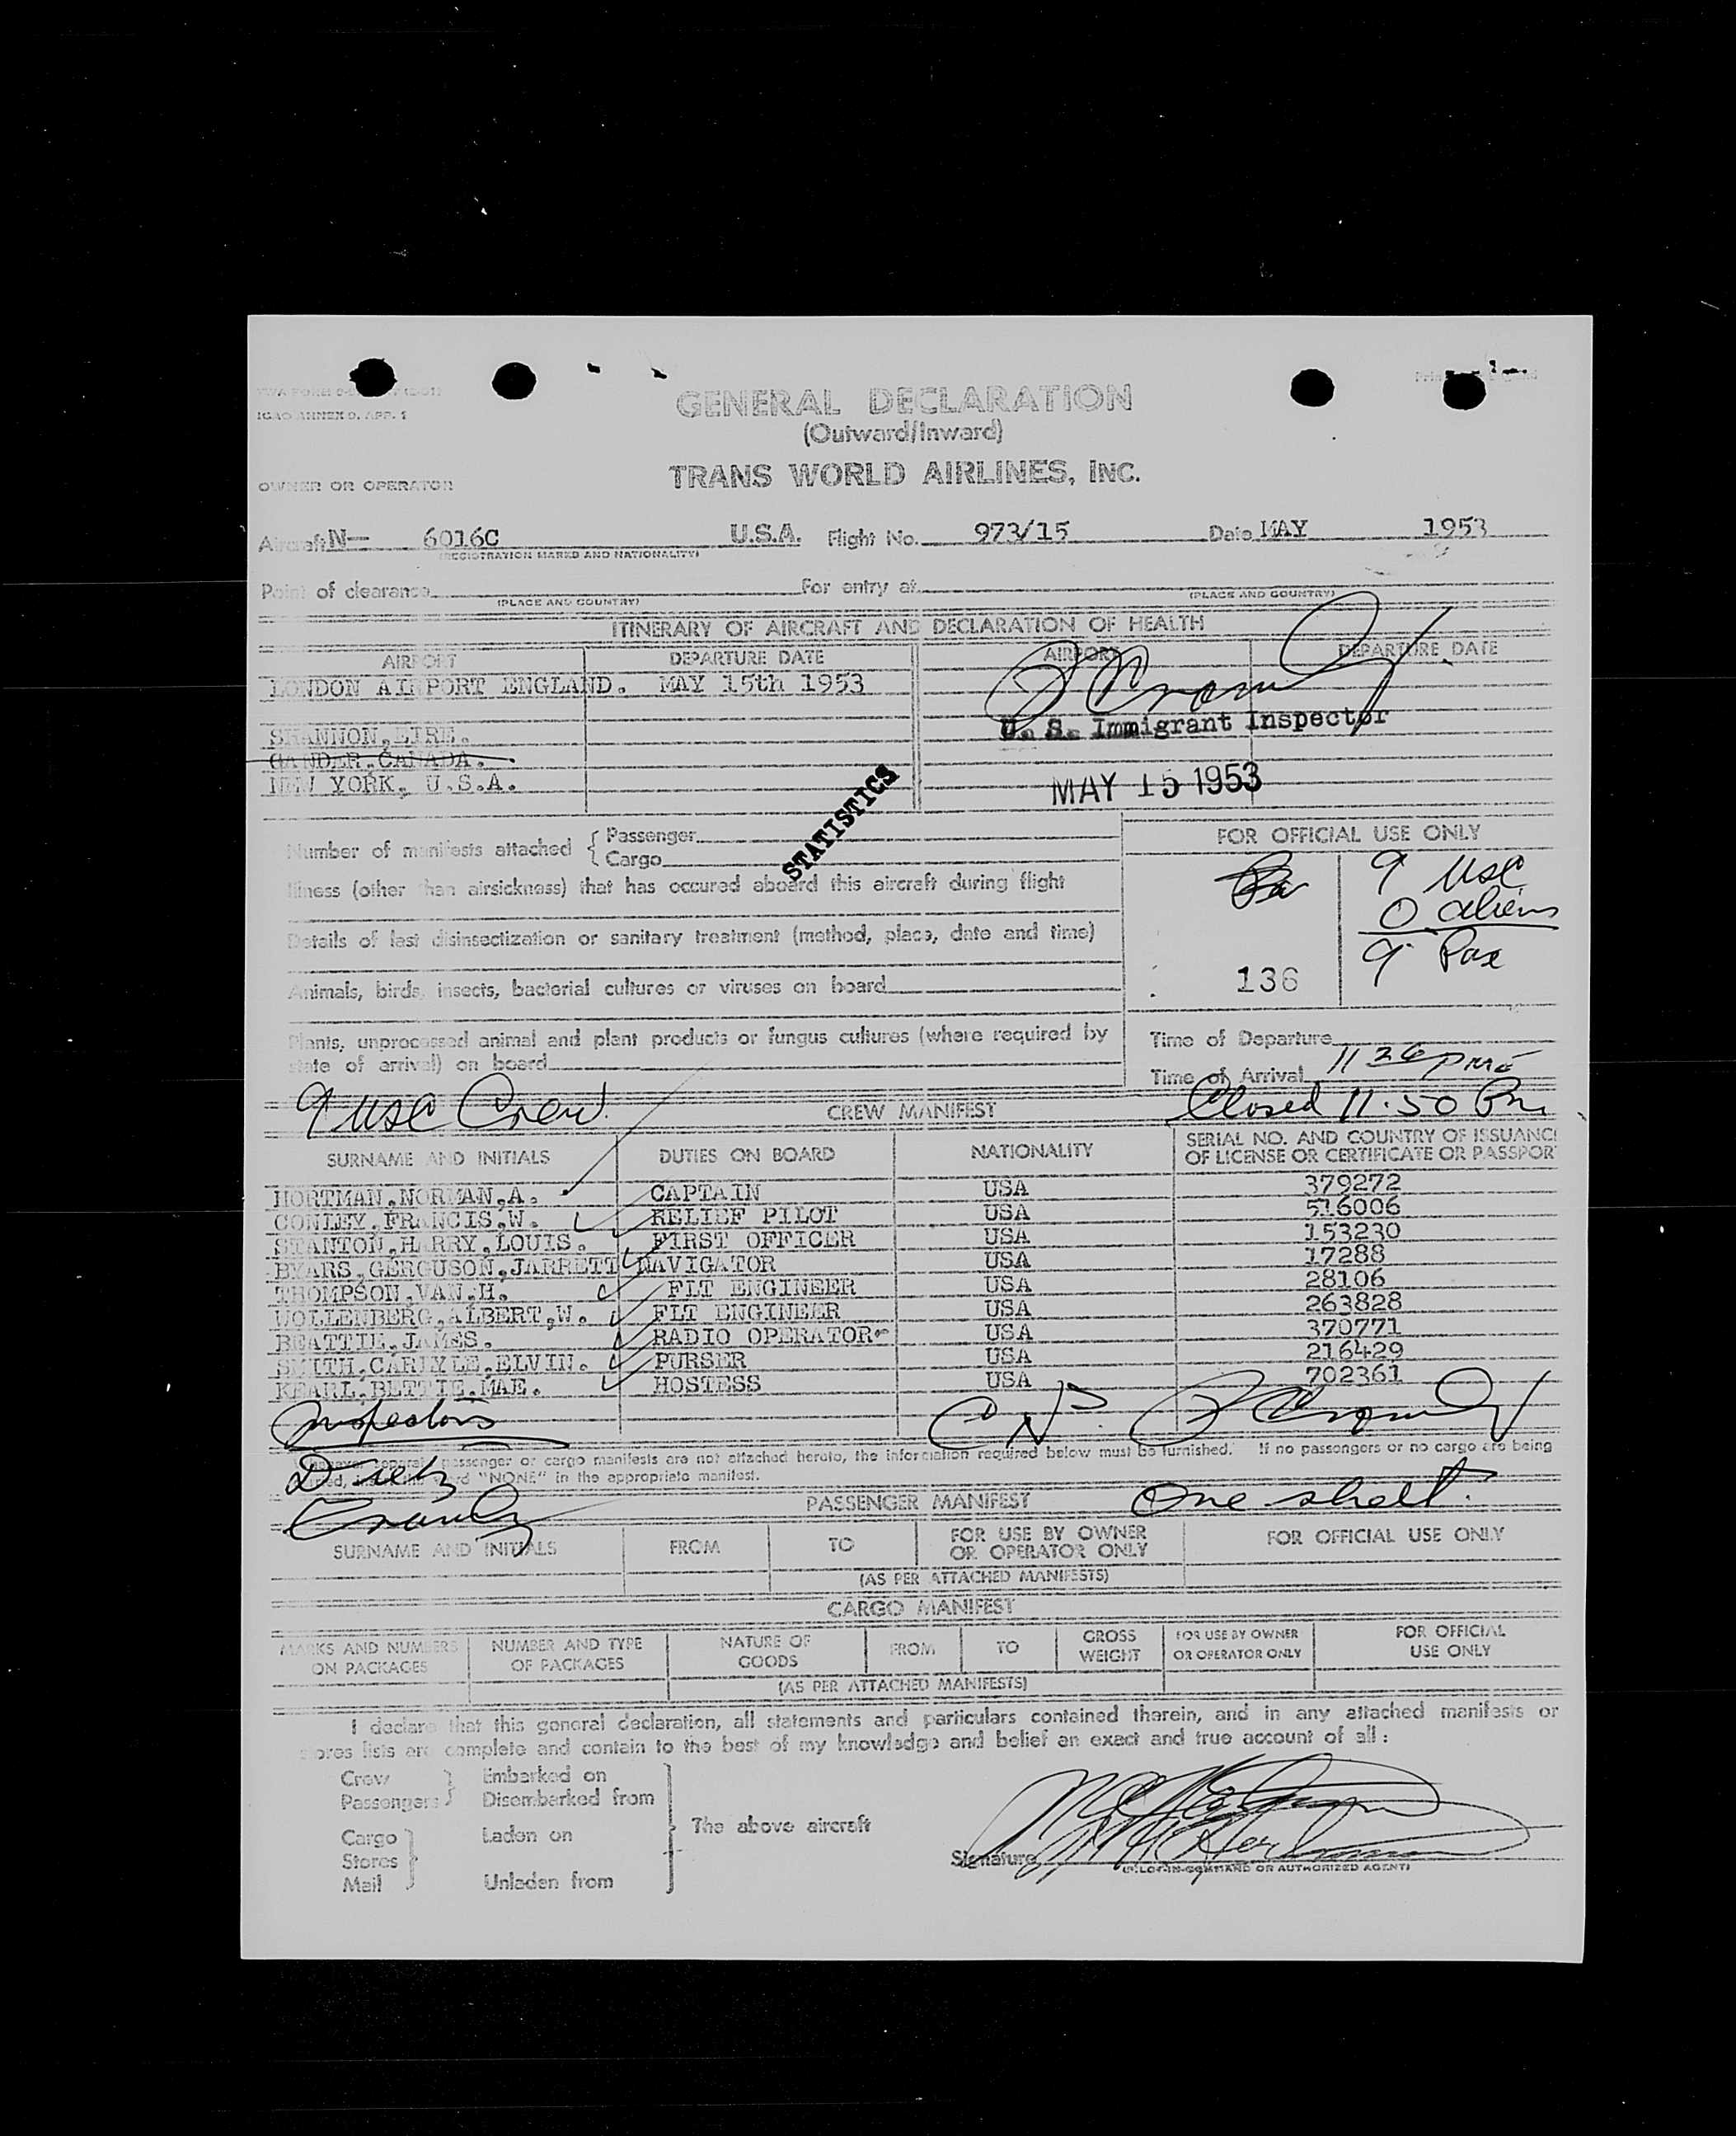 ICAO ANNEX 9, APP. 1
GENERAL DECLARATION
(Outward/Inward)
OWNER OR OPERATOR
TRANS WORLD AIRLINES, INC.
Aircraft N— 6016C U.S.A. Flight No. 973/15 Date MAY 1953
(REGISTRATION MARKS AND NATIONALITY)
Point of clearance For entry at
(PLACE AND COUNTRY) (PLACE AND COUNTRY)
ITINERARY OF AIRCRAFT AND DECLARATION OF HEALTH
AIRPORT DEPARTURE DATE AIRPORT DEPARTURE DATE
LONDON AIRPORT ENGLAND. MAY 15th 1953
U. S. Immigrant Inspector
SHANNON, EIRE.
GANDER, CANADA.
NEW YORK, U.S.A.
MAY 15 1953
STATISTICS
Number of manifests attached { Passenger
Cargo
FOR OFFICIAL USE ONLY
9 USC
0 aliens
9 Pax
136
Illness (other than airsickness) that has occured aboard this aircraft during flight
Details of last disinsectization or sanitary treatment (method, place, date and time)
Animals, birds, insects, bacterial cultures or viruses on board
Plants, unprocessed animal and plant products or fungus cultures (where required by
state of arrival) on board
Time of Departure
Time of Arrival 11 26 pm
Closed 11.50 Pm
9 USC Crew
CREW MANIFEST
SURNAME AND INITIALS DUTIES ON BOARD NATIONALITY SERIAL NO. AND COUNTRY OF ISSUANCE
OF LICENSE OR CERTIFICATE OR PASSPOR
HORTMAN, NORMAN, A. CAPTAIN USA 379272
CONLEY, FRANCIS, W. RELIEF PILOT USA 516006
STANTON, HARRY, LOUIS. FIRST OFFICER USA 153230
BYARS, GERGUSON, JARRETT NAVIGATOR USA 17288
THOMPSON, VAN. H. FLT ENGINEER USA 28106
WOLLENBERG, ALBERT, W. FLT ENGINEER USA 263828
BEATTIE, JAMES. RADIO OPERATOR USA 370771
SMITH, CARLYLE, ELVIN. PURSER USA 216429
KEARL, BETTIE, MAE. HOSTESS USA 702361
Inspectors
passenger or cargo manifests are not attached hereto, the information required below must be furnished. If no passengers or no cargo are being
"NONE" in the appropriate manifest.
PASSENGER MANIFEST One sheet.
SURNAME AND INITIALS FROM TO FOR USE BY OWNER
OR OPERATOR ONLY FOR OFFICIAL USE ONLY
(AS PER ATTACHED MANIFESTS)
CARGO MANIFEST
MARKS AND NUMBERS
ON PACKAGES NUMBER AND TYPE
OF PACKAGES NATURE OF
GOODS FROM TO GROSS
WEIGHT FOR USE BY OWNER
OR OPERATOR ONLY FOR OFFICIAL
USE ONLY
(AS PER ATTACHED MANIFESTS)
I declare that this general declaration, all statements and particulars contained therein, and in any attached manifests or
stores lists are complete and contain to the best of my knowledge and belief an exact and true account of all:
Crew } Embarked on
Passengers Disembarked from
Cargo } Laden on The above aircraft
Stores
Mail Unladen from
Signature
(PILOT-IN-COMMAND OR AUTHORIZED AGENT)